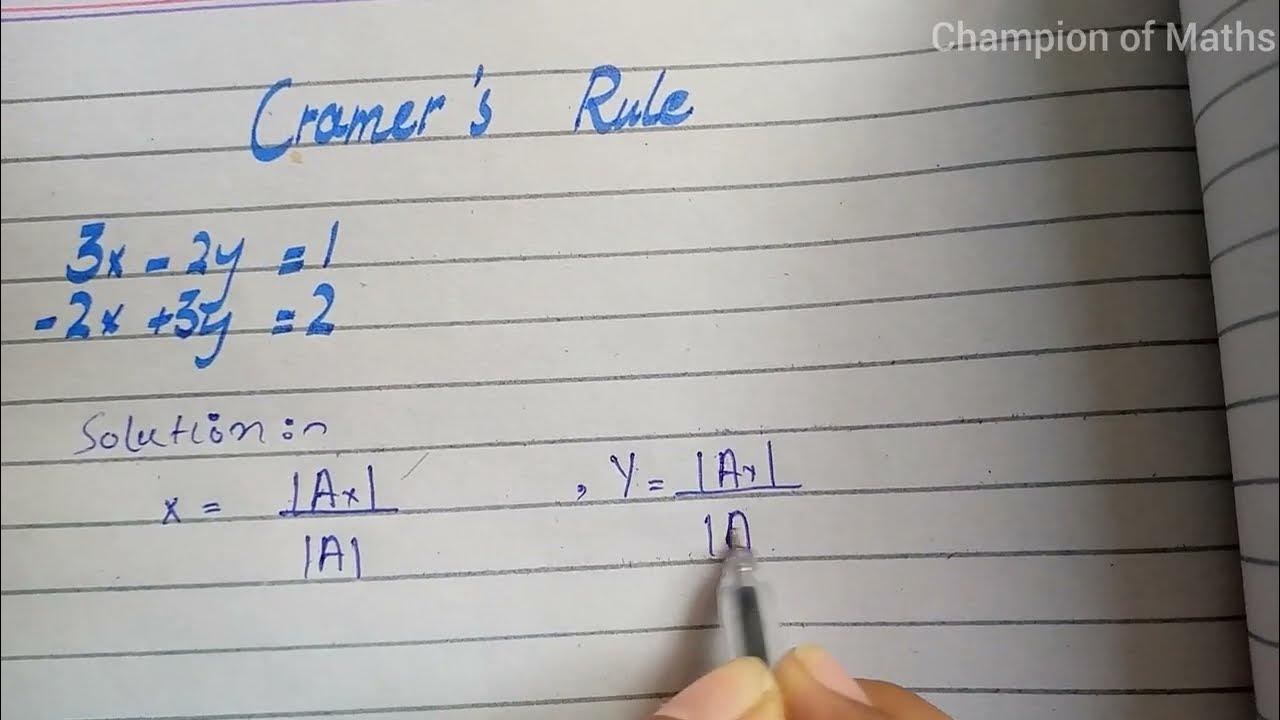 Champion of Maths
Cramer's Rule
3x - 2y = 1
-2x + 3y = 2
Solution :-
x = |Ax| / |A| , Y = |Ay| / |A